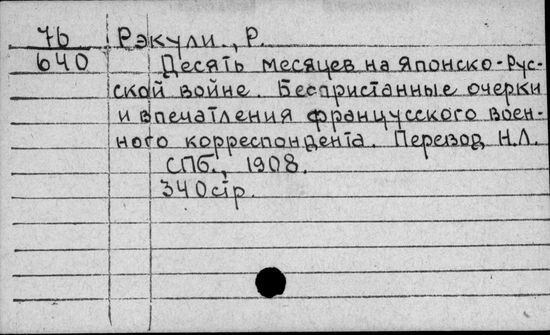 76 Рэкули., Р.
640 Десять месяцев на Японско-Рус-
ской войне. Беспристанные очерки
и впечатления французсского воен-
ного корреспондента. Перевод Н.Л.
СПб., 1908.
340стр.